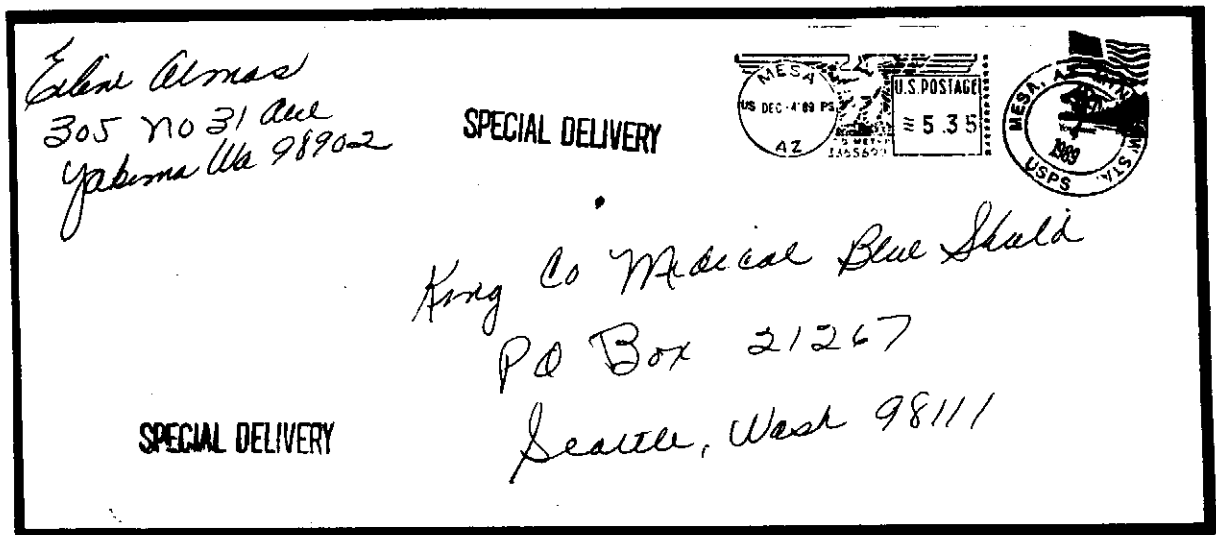 Eilene Almas
305 No 31 Ave
Yakima Wa 98902
SPECIAL DELIVERY
MESA
US DEC -4 '89 PS
AZ
U.S. POSTAGE
5.35
MESA, AZ
STA.
1989
USPS
King Co Medical Blue Shield
PO Box 21267
Seattle, Wash 98111
SPECIAL DELIVERY